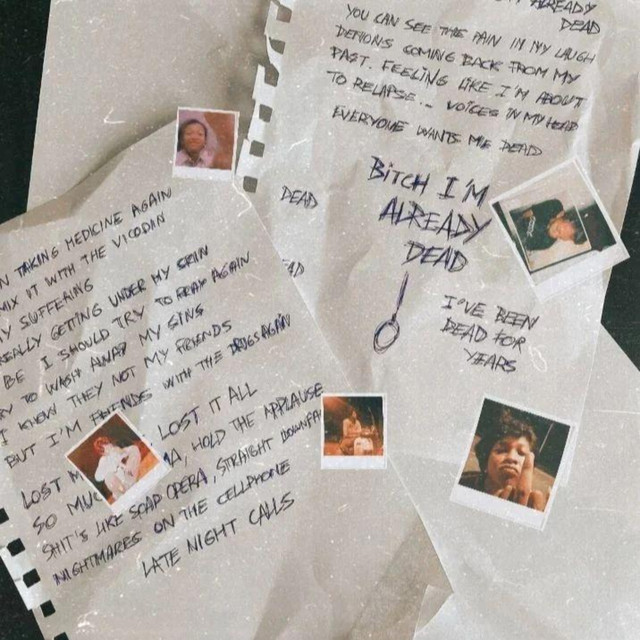 ALREADY
DEAD
YOU CAN SEE THE PAIN IN MY LAUGH
DEMONS COMING BACK FROM MY
PAST. FEELING LIKE I'M ABOUT
TO RELAPSE... VOICES IN MY HEAD
EVERYONE WANTS ME DEAD
BITCH I'M
ALREADY
DEAD
I'VE BEEN
DEAD FOR
YEARS
DEAD
TAKING MEDICINE AGAIN
MIX IT WITH THE VICODIN
MY SUFFERING
REALLY GETTING UNDER MY SKIN
BE I SHOULD TRY TO PRAY AGAIN
TRY TO WASH AWAY MY SINS
I KNOW THEY NOT MY FRIENDS
BUT I'M FRIENDS WITH THE DRUGS AGAIN
LOST IT ALL
LOST
SO HOLD THE APPLAUSE
SHIT'S LIKE SOAP OPERA, STRAIGHT
NIGHTMARES ON THE CELLPHONE
LATE NIGHT CALLS